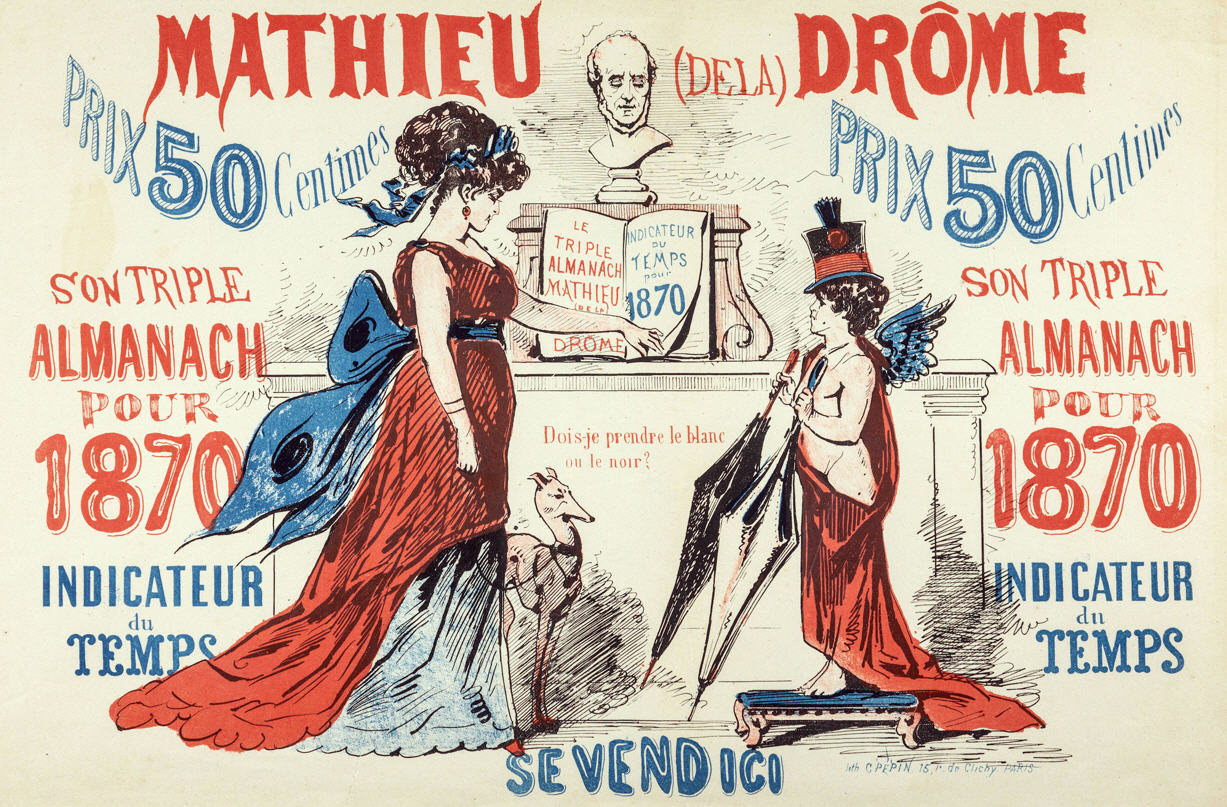 MATHIEU (DE LA) DRÔME
PRIX 50 Centimes
PRIX 50 Centimes
SON TRIPLE
ALMANACH
POUR
1870
INDICATEUR
du
TEMPS
LE
TRIPLE
ALMANACH
MATHIEU
(DE LA)
DRÔME
INDICATEUR
DU
TEMPS
pour
1870
Dois-je prendre le blanc
ou le noir?
SON TRIPLE
ALMANACH
POUR
1870
INDICATEUR
du
TEMPS
SE VEND ICI
lith C. PÉPIN, 15, r. de Clichy. PARIS